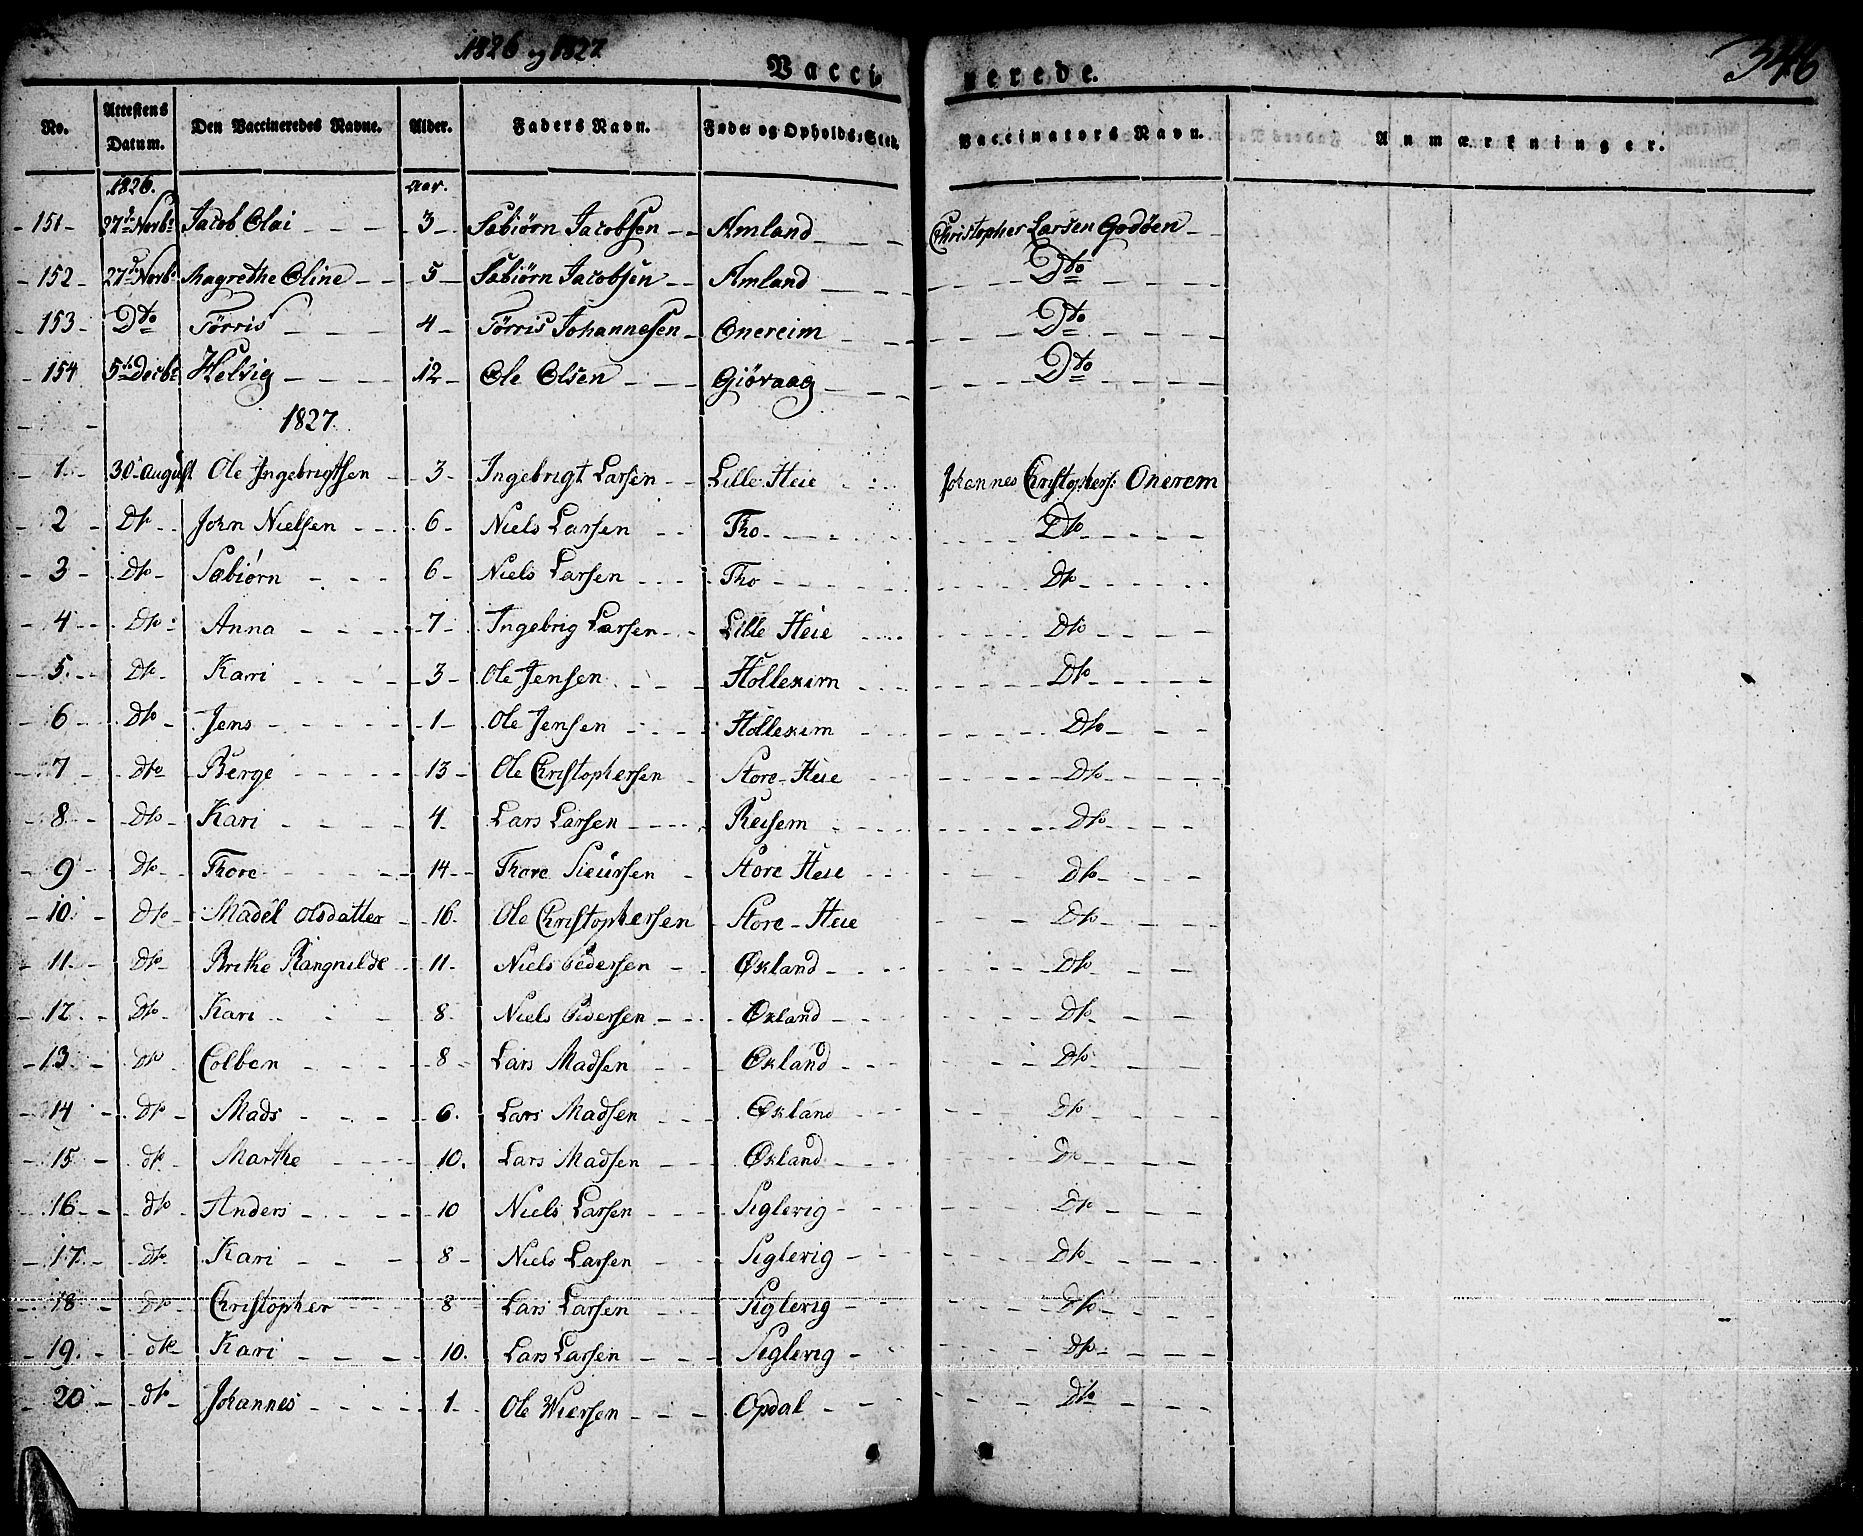 1826 og 1827
346
Vaccinerede.
No. | Attestens Datum. | Den Vaccineredes Navne. | Alder. | Faders Navn. | Føde- og Opholds-Sted. | Vaccinateurs Navn. | Anmærkninger.
1826. | Aar.
151 | 27de Novbr | Jacob Olai | 3 | Sæbiørn Jacobsen | Amland | Christopher Larsen Godøen
152 | 27de Novbr | Magrethe Oline | 5 | Sæbiørn Jacobsen | Amland | Dto
153 | Dto | Tørris | 4 | Tørris Johannesen | Onereim | Dto
154 | 5te Decbr | Helvig | 12 | Ole Olsen | Giøvaag | Dto
1827.
1. | 30 August | Ole Ingebrigtsen | 3 | Ingebrigt Larsen | Lille Heie | Johannes Christophers: Onerem
2 | Dto | John Nielsen | 6 | Niels Larsen | Tho | Dto
3 | Dto | Sæbiørn | 6 | Niels Larsen | Tho | Dto
4 | Dto | Anna | 7 | Ingebrig Larsen | Lille Heie | Dto
5. | Dto | Kari | 3 | Ole Jensen | Hollekim | Dto
6 | Dto | Jens | 1 | Ole Jensen | Hollekim | Dto
7 | Dto | Berge | 13 | Ole Christophersen | Store-Heie | Dto
8. | Dto | Kari | 4. | Lars Larsen | Reisem | Dto
9 | Dto | Thore | 14 | Thore Sieursen | Store Heie | Dto
10. | Dto | Madel Olsdatter | 16. | Ole Christophersen | Store-Heie | Dto
11. | Dto | Brithe Rangnilde | 11. | Niels Pedersen | Økland | Dto
12. | Dto | Kari | 8. | Niels Pedersen | Økland | Dto
13. | Dto | Colben | 8 | Lars Madsen | Økland | Dto
14 | Dto | Mads | 6. | Lars Madsen | Økland | Dto
15 | dto | Marthe | 10. | Lars Madsen | Økland | Dto
16 | dto | Anders | 10 | Niels Larsen | Siglevig | Dto
17. | dto | Kari | 8 | Niels Larsen | Siglevig | Dto
18 | Dto | Christopher | 8 | Lars Larsen | Siglevig | Dto
19. | dto | Kari | 10. | Lars Larsen | Siglevig | Dto
20 | dto | Johannes | 1. | Ole Wiersen | Opdal | Dto